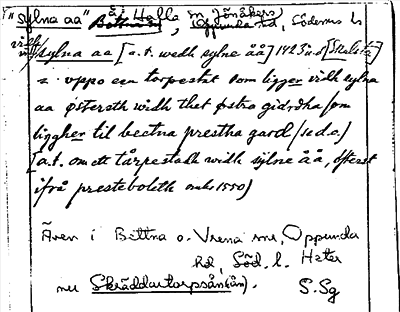 "Sylna aa" Bettna i Halla sn, Jönåkers, Oppunda hd, Söderm. l.
sylna aa [a.t. wedh sylne åå] 1423
= uppo een torpestat som ligger vidh sylna
aa østersth widh thet østra gidrdha som
liggher til beetna prestha gard (se d.o.)
[a.t. om ett tårpestadh widh sÿlne åå, østerst
ifrå presteboleth omkr 1550)
Även i Bettna o. Vrena snr, Oppunda
hd, Söd. l. Heter
nu Skräddartorpsån(ån).
S. Sg